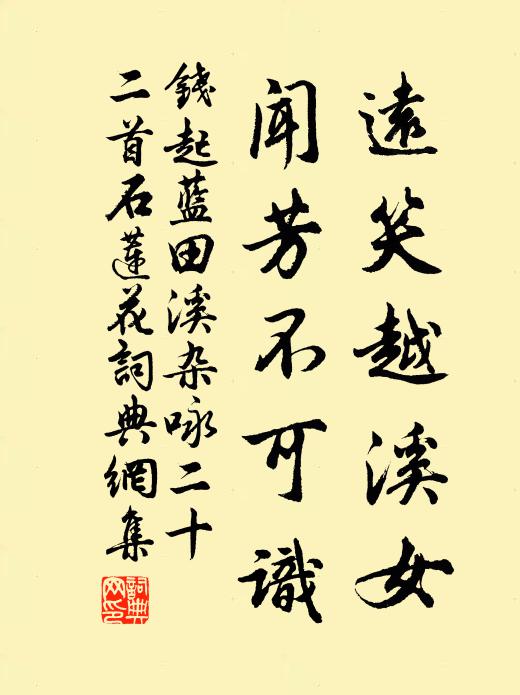 遠笑越溪女
聞芳不可識
錢起藍田溪杂咏二十
二首石蓮花詞典網集
詞典
网印